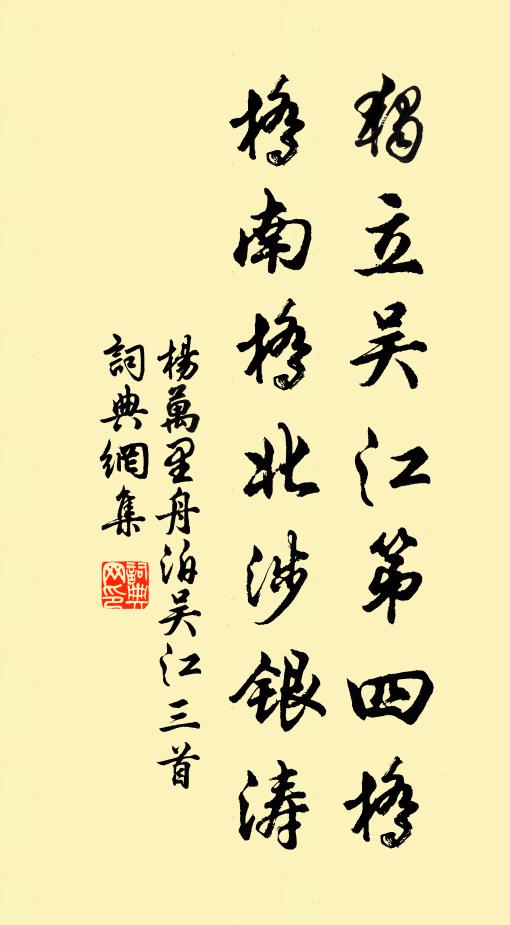 獨立吳江第四橋
橋南橋北涉銀濤
楊萬里舟泊吳江三首
詞典網集
詞典
网印